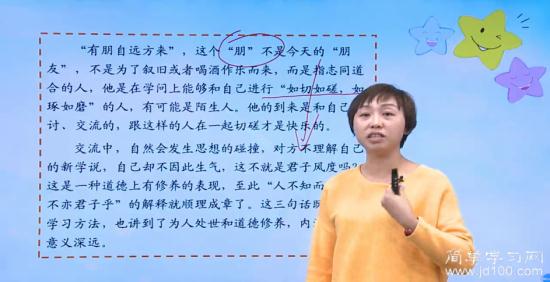 “有朋自远方来”，这个“朋”不是今天的“朋
友”，不是为了叙旧或者喝酒作乐而来，而是指志同道
合的人，他是在学问上能够和自己进行“如切如磋，如
琢如磨”的人，有可能是陌生人。他的到来是和自己
讨、交流的，跟这样的人在一起切磋才是快乐的。
交流中，自然会发生思想的碰撞，对方不理解自己
的新学说，自己却不因此生气，这不就是君子风度吗？
这是一种道德上有修养的表现，至此“人不知而
不亦君子乎”的解释就顺理成章了。这三句话
学习方法，也讲到了为人处世和道德修养，内
意义深远。
简单学习网
www.jd100.com